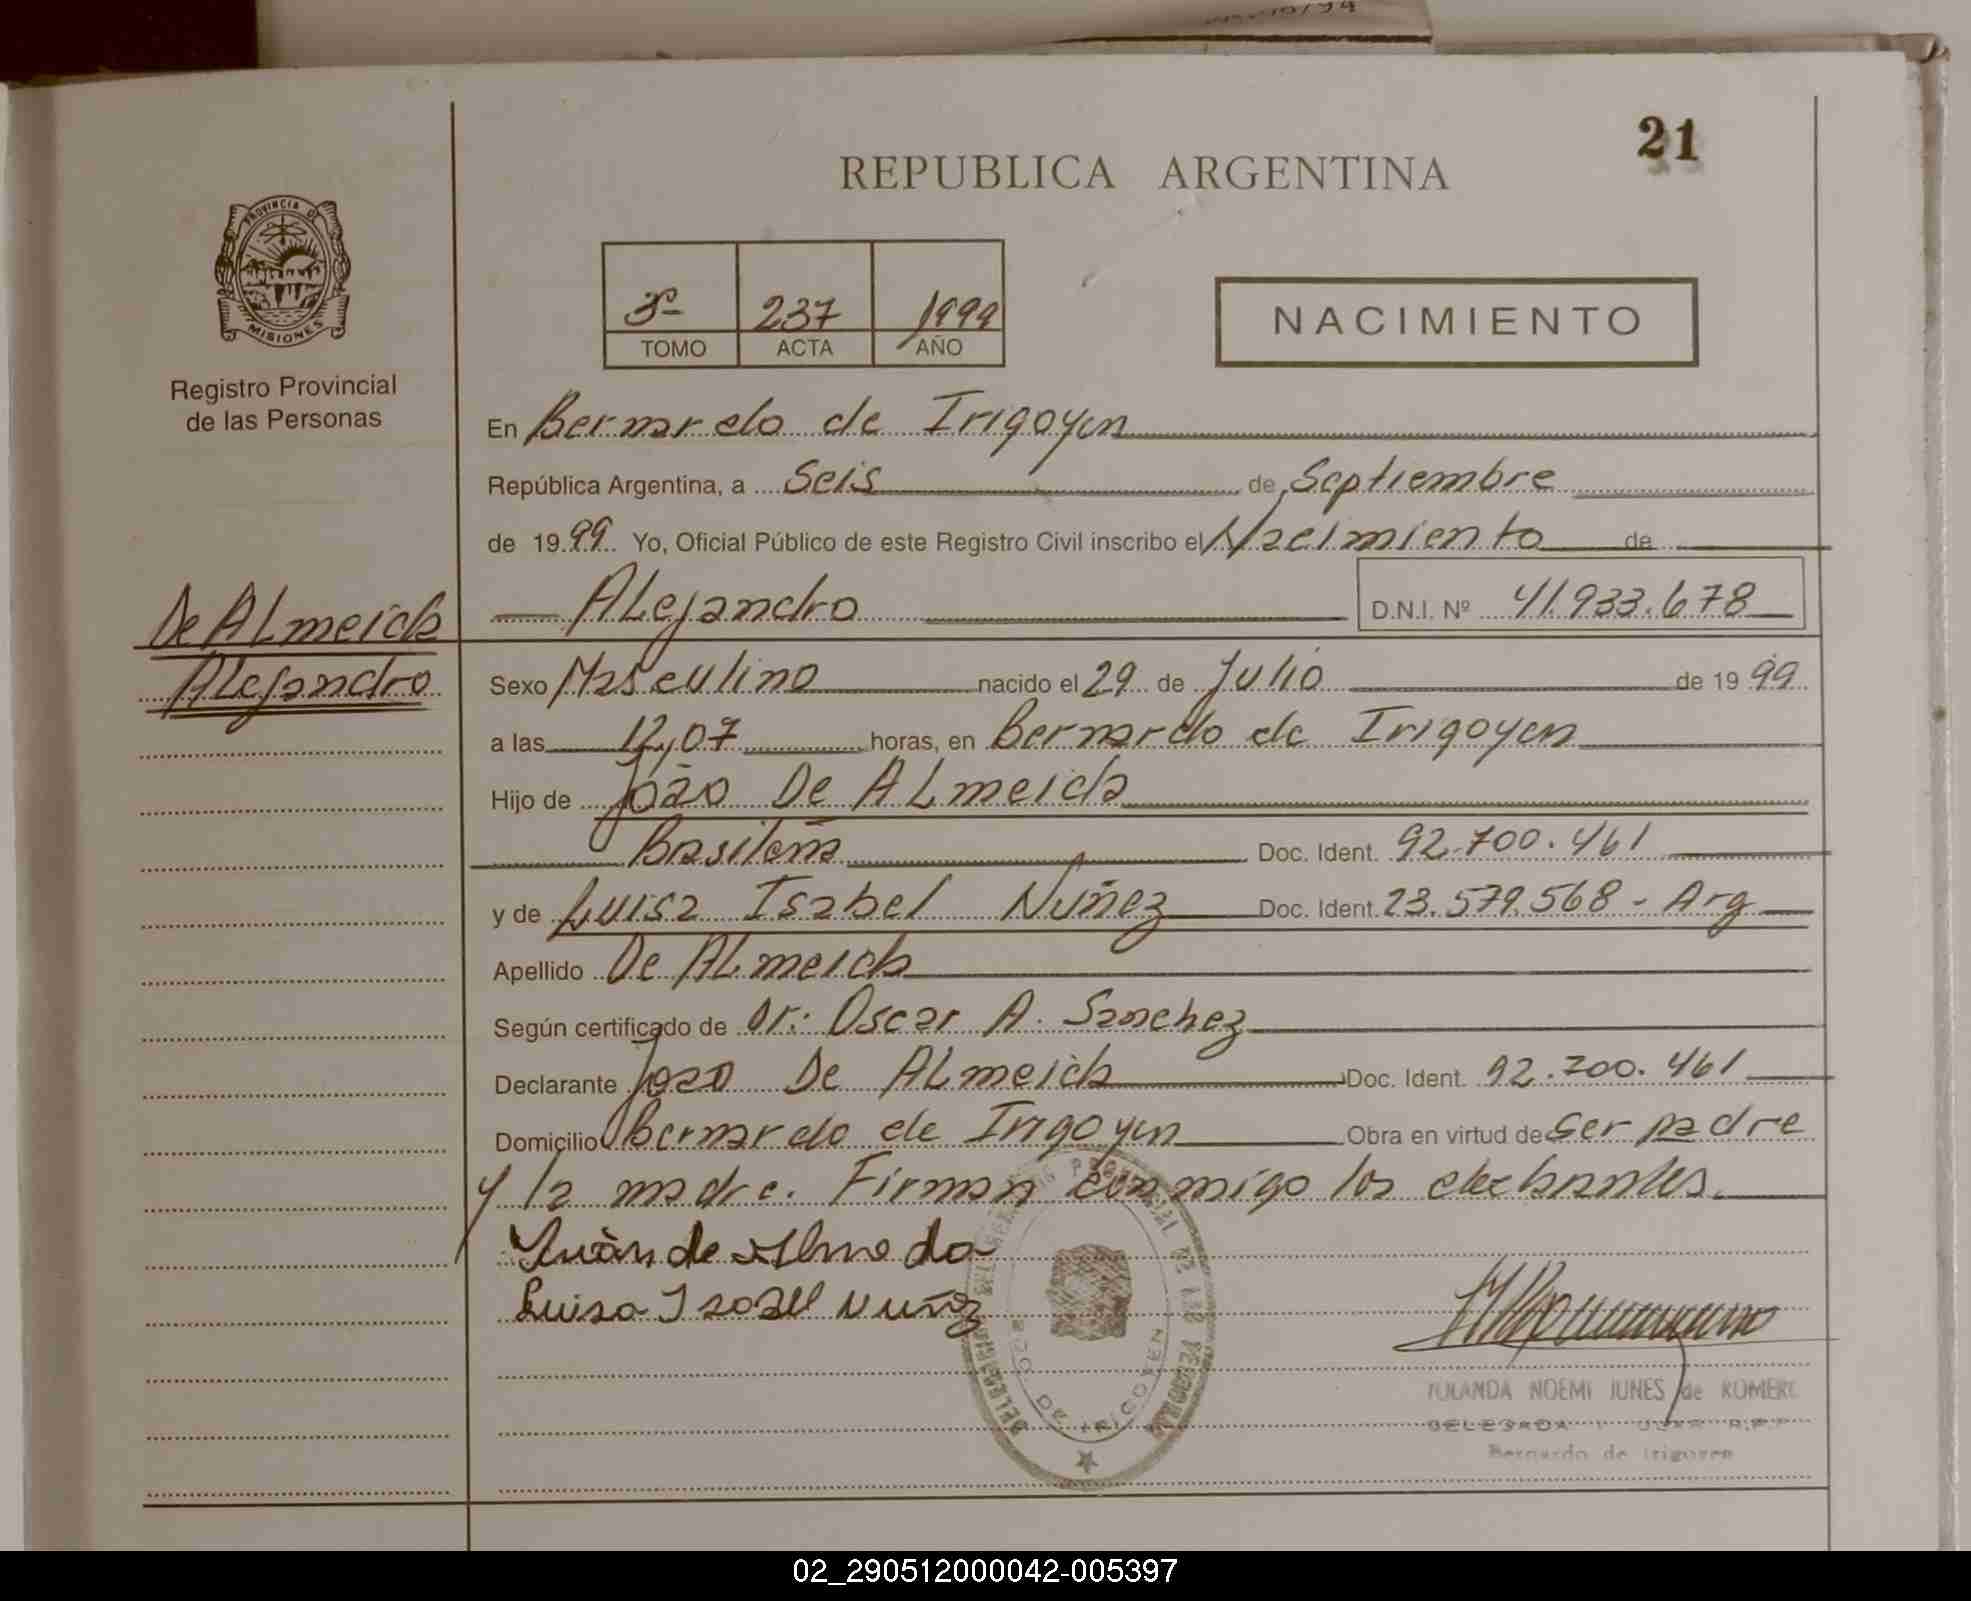 21
REPUBLICA ARGENTINA
PROVINCIA DE
MISIONES
Registro Provincial
de las Personas
3º 237 1999
TOMO ACTA AÑO
NACIMIENTO
En Bernardo de Irigoyen
República Argentina, a Seis de Septiembre
de 1999 Yo, Oficial Público de este Registro Civil inscribo el Nacimiento de
Alejandro D.N.I. Nº 41.933.678
De ALmeida
Alejandro
Sexo Masculino nacido el 29 de Julio de 1999
a las 12,07 horas, en Bernardo de Irigoyen
Hijo de João De ALmeida
Brasileña Doc. Ident. 92.700.461
y de Luisa Isabel Nuñez Doc. Ident. 23.579.568 - Arg
Apellido De ALmeida
Según certificado de Dr. Oscar A. Sanchez
Declarante Joao De ALmeida Doc. Ident. 92.700.461
Domicilio Bernardo de Irigoyen Obra en virtud de Ser padre
y la madre. Firman conmigo los declarantes.
Luisa Isabel Nuñez
YOLANDA NOEMI JUNES de ROMERO
DELEGADA
Bernardo de Irigoyen
02_290512000042-005397